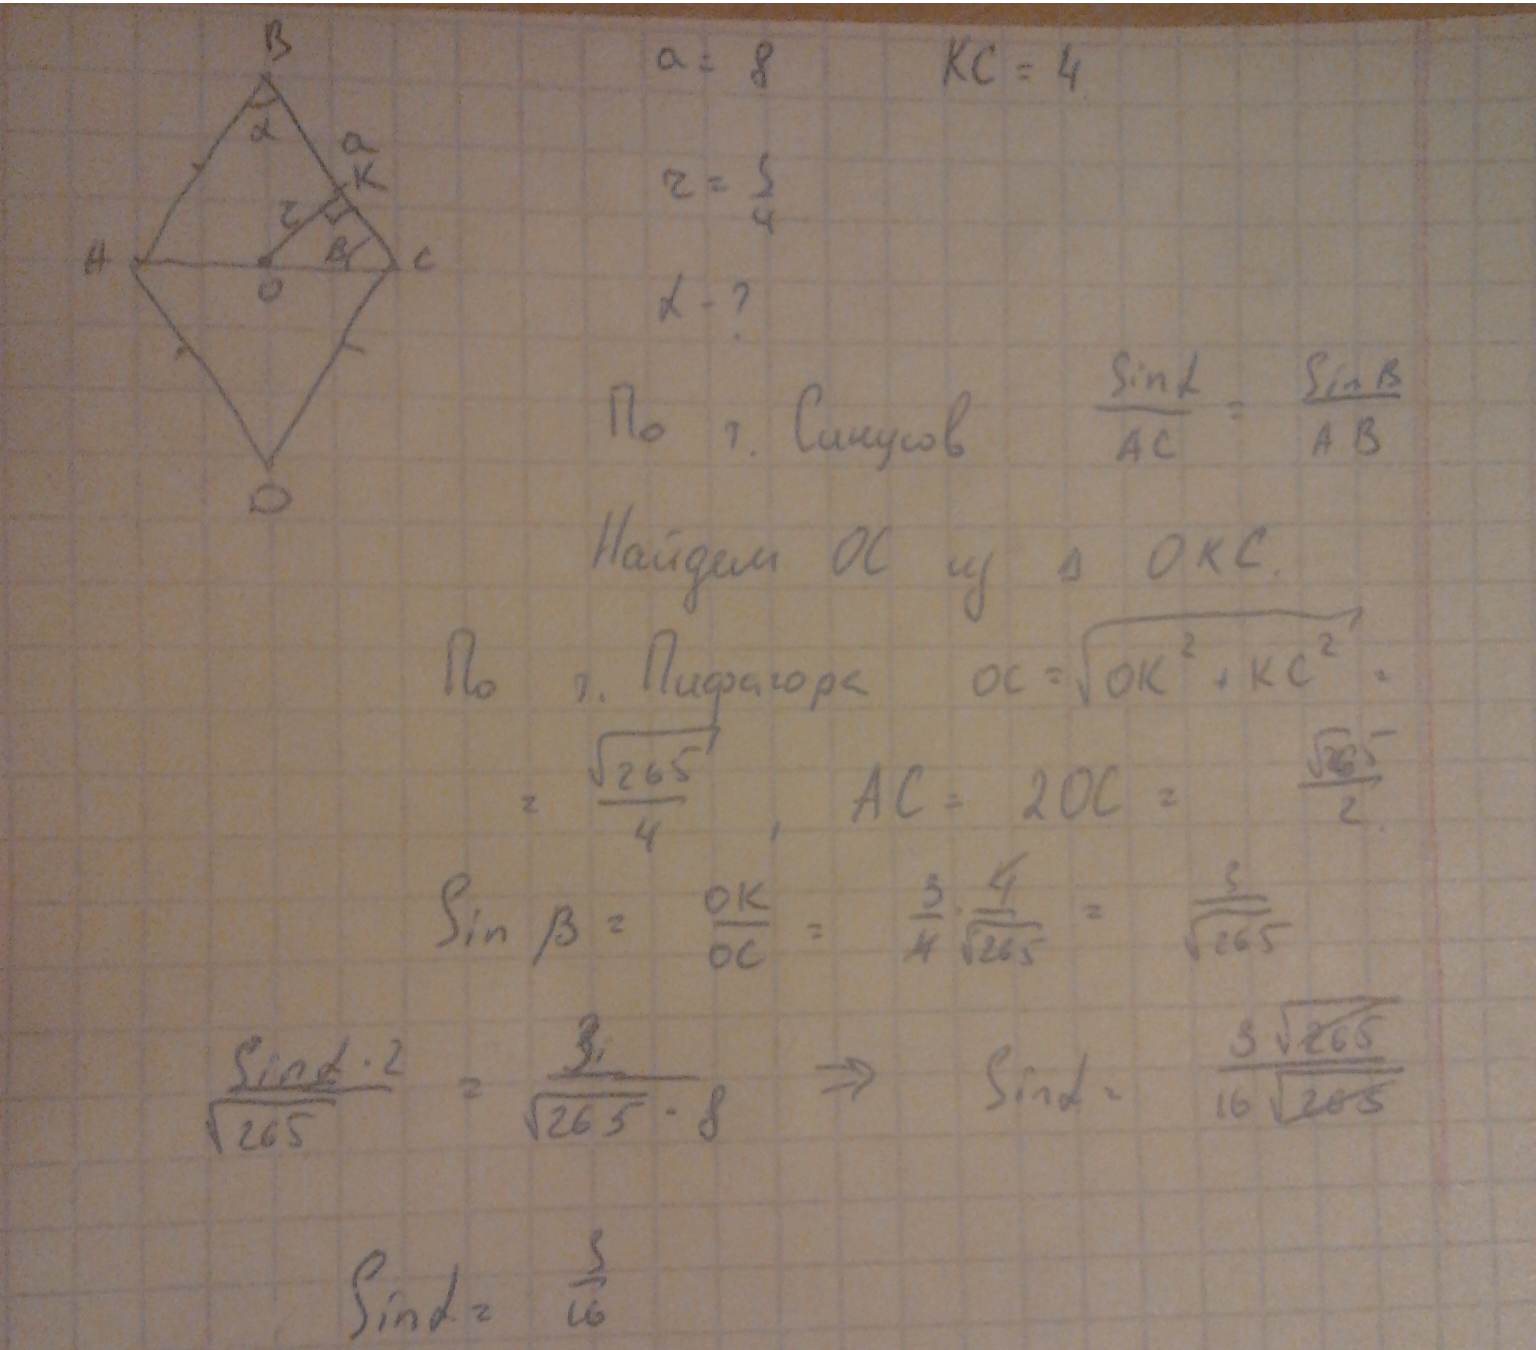 B
a = 8 KC = 4
α a
K
r = 3/4
r
A β C
O
α - ?
D
По т. Синусов Sinα/AC = Sinβ/AB
Найдем OC из Δ OKC.
По т. Пифагора OC = √(OK² + KC²) =
= √265/4 , AC = 2OC = √265/2
Sin β = OK/OC = 3/4 · 4/√265 = 3/√265
Sinα · 2/√265 = 3/√265 · 8 ⇒ Sinα = 3√265/16√265
Sinα = 3/16